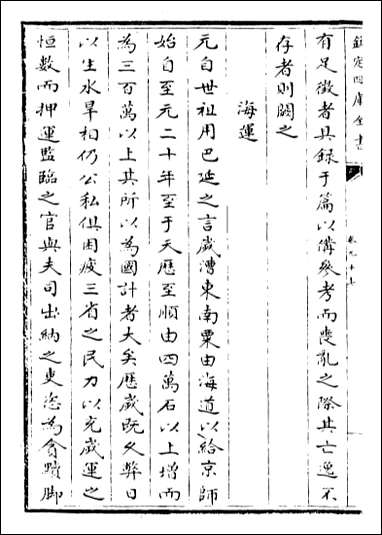 欽定四庫全書
卷九十七
有足徵者具録于篇以備參考而喪亂之際其亡逸不
存者則闕之
海運
元自世祖用巴延之言歲漕東南粟由海道以給京師
始自至元二十年至于天厯至順由四萬石以上增而
為三百萬以上其所以為國計者大矣厯歲既久弊日
以生水旱相仍公私俱困疲三省之民力以充歲運之
恒數而押運監臨之官與夫司出納之吏恣為貪黷脚